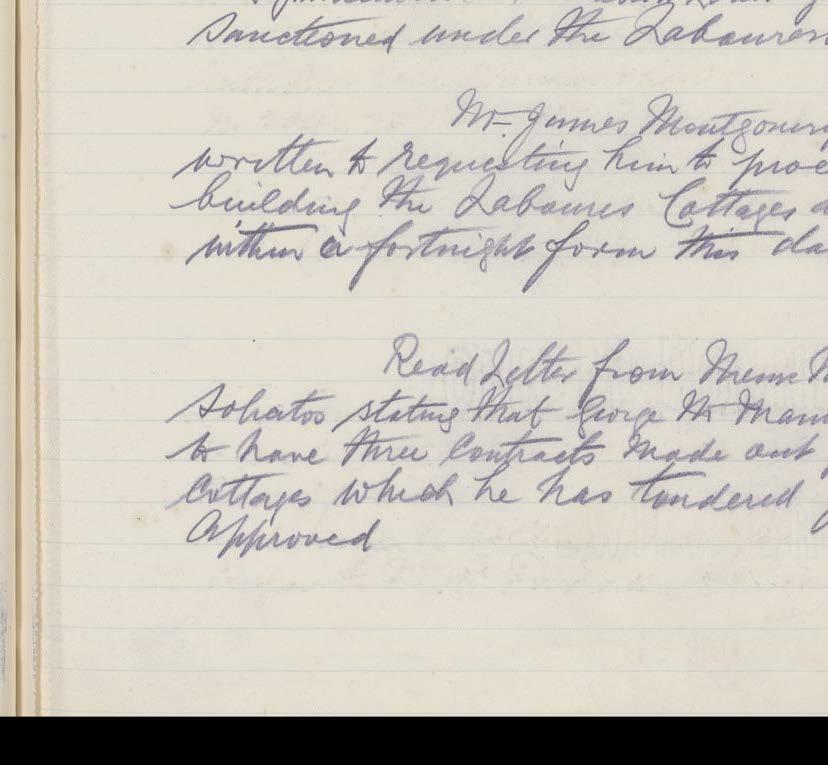 sanctioned under the Labourers
Mr. James Montgomery
written to requesting him to proc
building the Laboures Cottages
within a fortnight form this da
Read Letter from Messrs
Solicitos stating that George Mc Mann
to have three Contracts Made out
Cottages which he has tendered
Approved